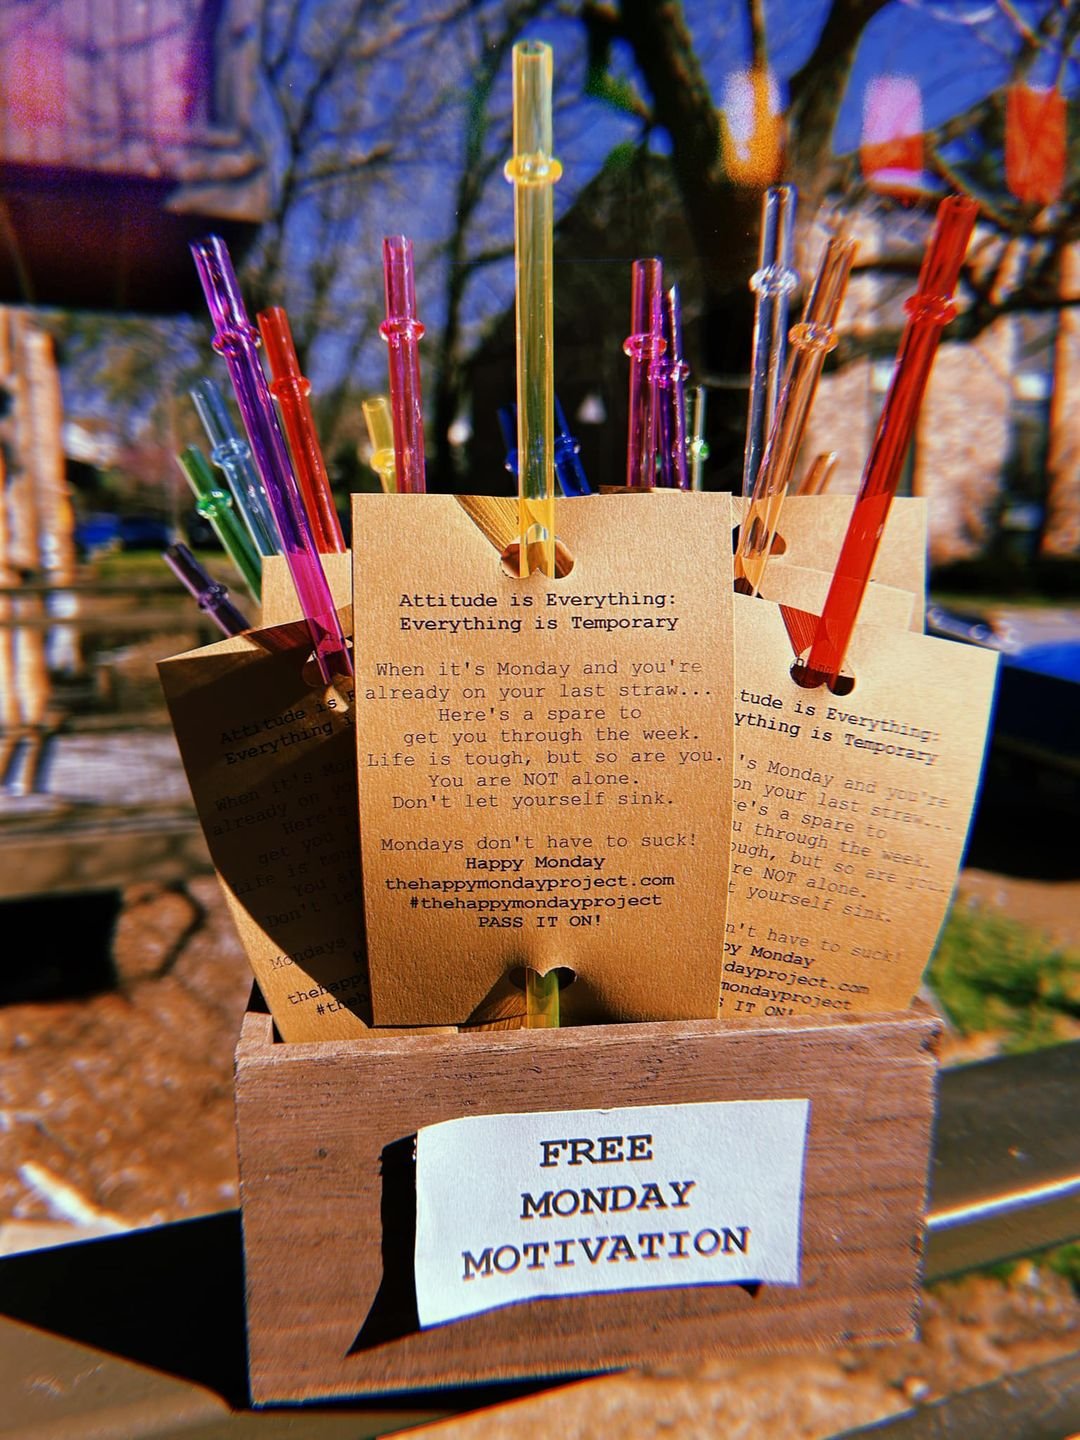 Attitude is Everything:
Everything is Temporary
When it's Monday and you're
already on your last straw...
Here's a spare to
get you through the week.
Life is tough, but so are you.
You are NOT alone.
Don't let yourself sink.
Mondays don't have to suck!
Happy Monday
thehappymondayproject.com
#thehappymondayproject
PASS IT ON!
Attitude is
Everything
When it's
already on
Here's
get you
Life is
You
Don't
Mondays
tude is Everything:
ything is Temporary
's Monday and you're
on your last straw...
e's a spare to
u through the week.
ough, but so are you.
re NOT alone.
t yourself sink.
n't have to suck!
py Monday
dayproject.com
mondayproject
S IT ON!
FREE
MONDAY
MOTIVATION